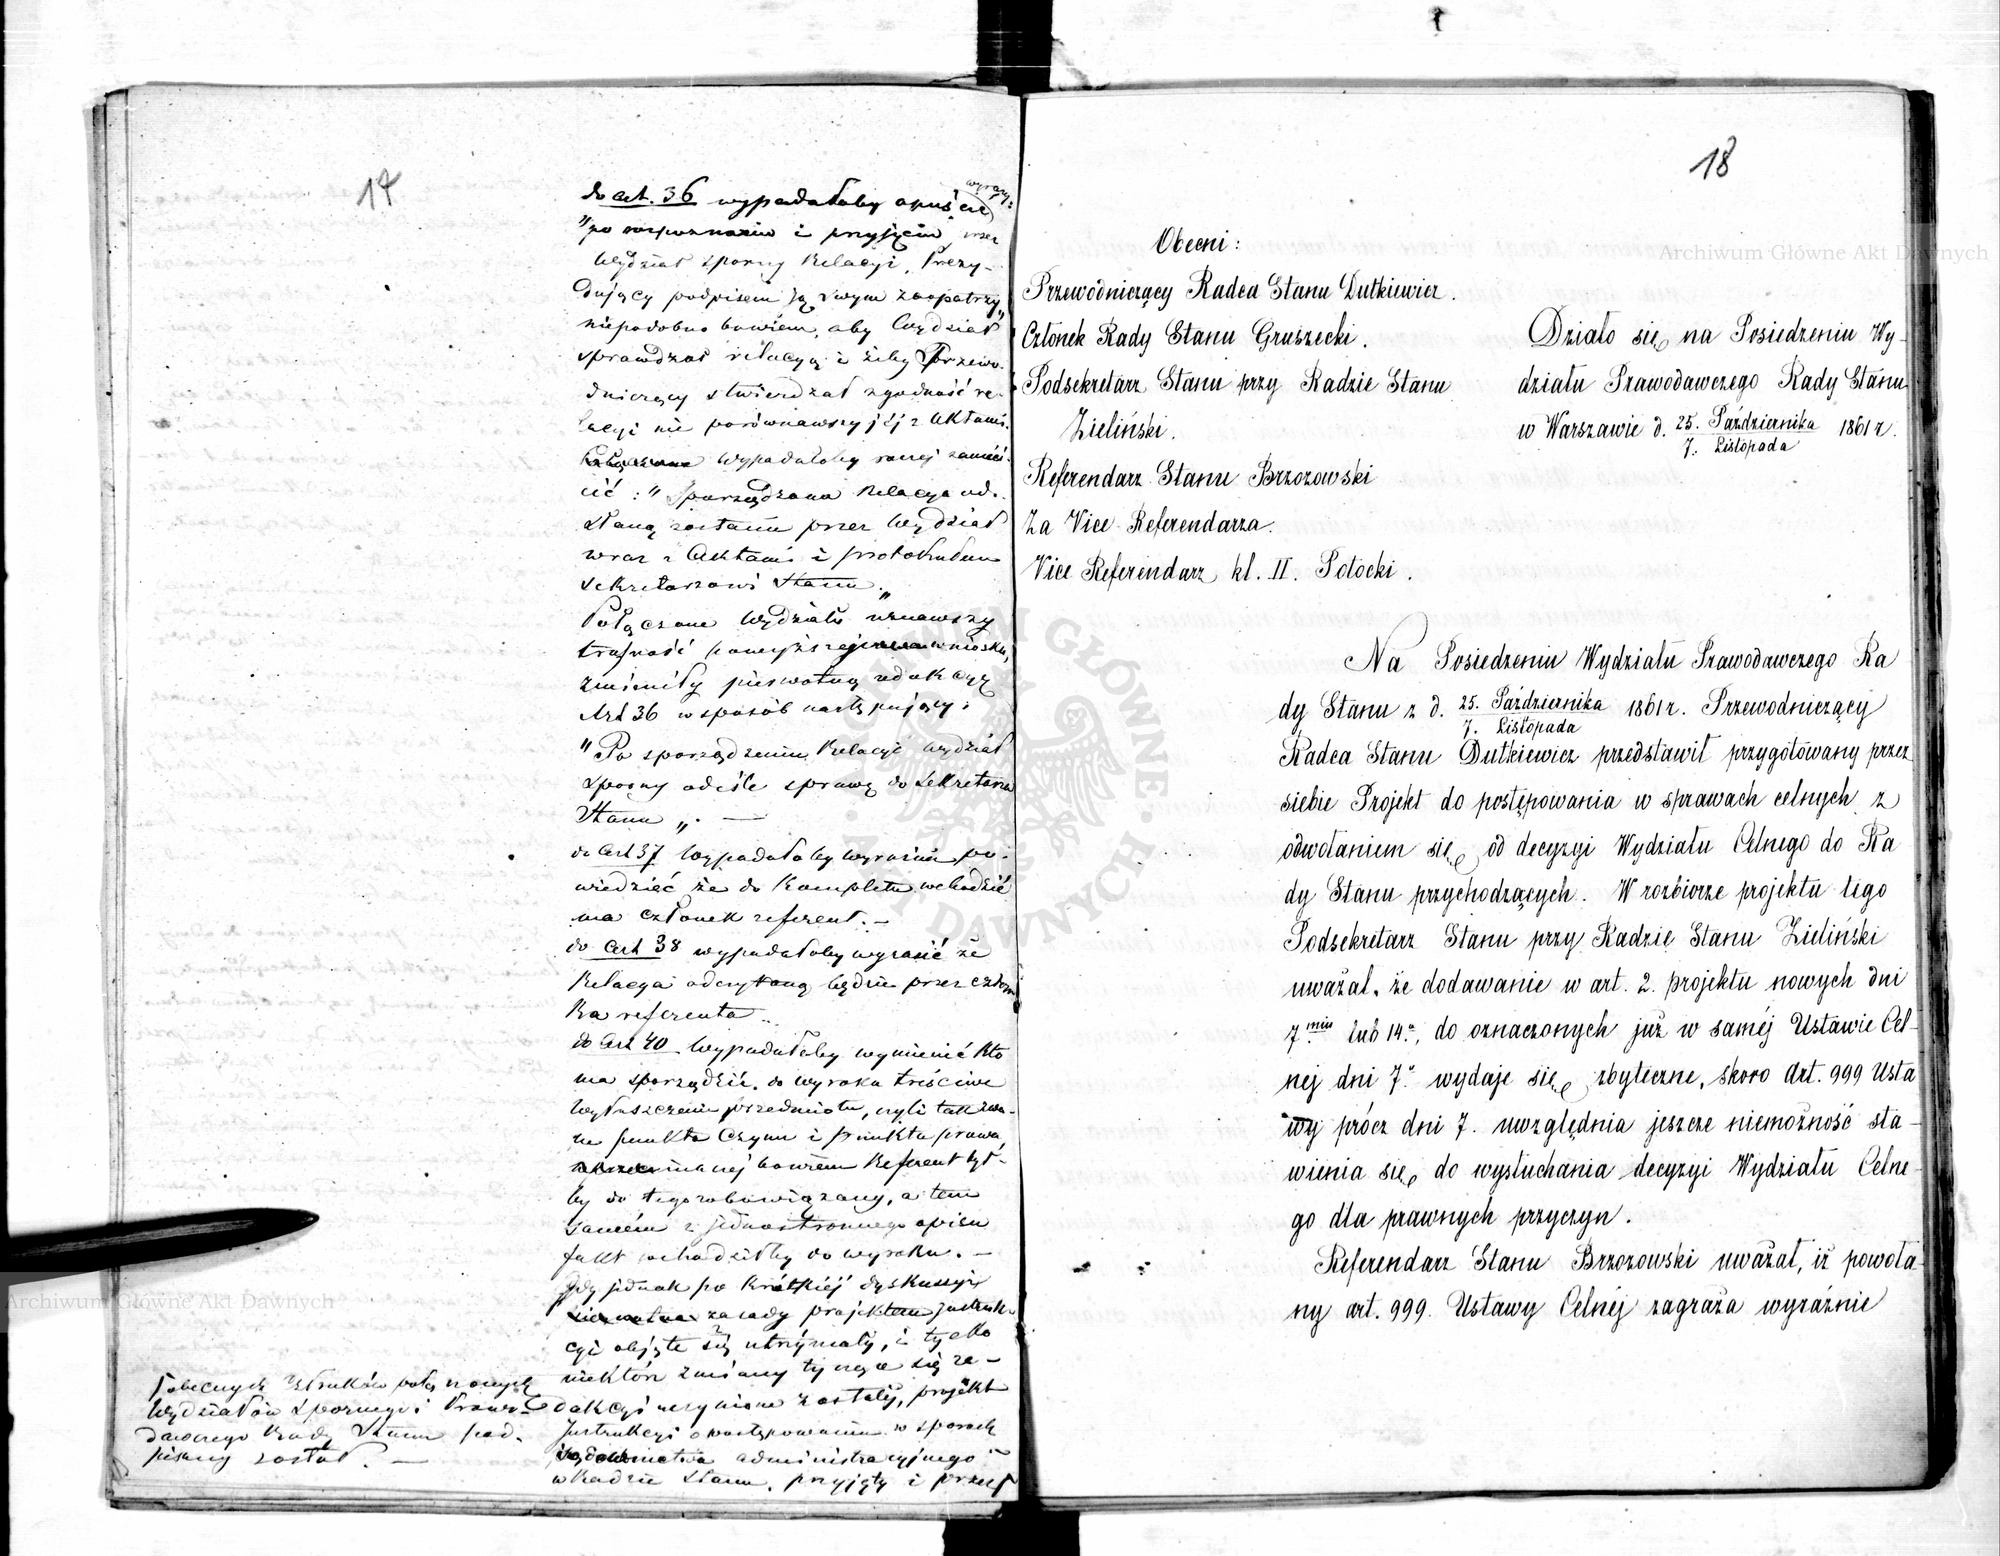 17
do art. 36 wypadałoby opuścić wyrazy:
"po rozpoznaniu i przyjęciu przez
Wydział sporny Relacyi, Prezy-
dujący podpisem ją swym zaopatrzy"
niepodobna bowiem, aby Wydział
sprawdzał relacyą i żeby Przewo-
dniczący stwierdzał zgodność re-
lacyi nie porównawszy jéj z Aktami.
wypadałoby raczej zamieś-
cić: "Sporządzona Relacya ode-
słaną zostanie przez Wydział
wraz z Aktami i protokułem
Sekretarzowi Stanu„
Połączone Wydziały uznawszy
trafność powyższego wniosku,
zmieniły pierwotną redakcyę
Art 36 w sposób następujący:
"Po sporządzeniu Relacyi Wydział
Sporny odeśle sprawę do Sekretarza
Stanu„. —
do Art 37 Wypadałoby wyraźnie po-
wiedzieć że do Kompletu wchodzić
ma członek referent. —
do art 38 wypadałoby wyrazić że
Relacya odczytaną będzie przez człon-
ka referenta.
do Art 40. Wypadałoby wymienić kto
ma sporządzić do wyroku treściwe
wyłuszczenie przedmiotu, czyli tak zwa-
ne punkta Czynu i punkta prawa,
inaczej bowiem Referent był-
by do tego zobowiązany, a tem
samém z jednostronnego opisu
fakt wchodziłby do wyroku. —
Gdy jednak po krótkiéj dyskussyi
zasady projektem Instruk-
cyi objęte się utrzymały, i tylko
niektóre zmiany tyczące się re-
dakcyi uczynione zostały, projekt
Instrukcyi o postępowaniu w sporach
sądownictwa administracyjnego
w Radzie Stanu, przyjęty i przez
obecnych Członków połączonych
Wydziałów Spornego i Prawo-
dawczego Rady Stanu pod-
pisany został. —
18
Obecni:
Przewodniczący Radca Stanu Dutkiewicz.
Członek Rady Stanu Gruszecki.
Podsekretarz Stanu przy Radzie Stanu
Zieliński.
Referendarz Stanu Brzozowski
Za Vice-Referendarza.
Vice Referendarz kl. II. Potocki.
Działo się na Posiedzeniu Wy-
działu Prawodawczego Rady Stanu
w Warszawie d. 25. Października / 7. Listopada 1861 r.
Na Posiedzeniu Wydziału Prawodawczego Ra
dy Stanu z d. 25. Października / 7. Listopada 1861 r. Przewodniczący
Radca Stanu Dutkiewicz przedstawił przygotowany przez
siebie Projekt do postępowania w sprawach celnych z
odwołaniem się od decyzyi Wydziału Celnego do Ra
dy Stanu przychodzących. W rozbiorze projektu tego
Podsekretarz Stanu przy Radzie Stanu Zieliński
uważał, że dodawanie w art. 2. projektu nowych dni
7miu lub 14u, do oznaczonych już w saméj Ustawie Cel-
nej dni 7u wydaje się zbyteczne, skoro Art. 999 Usta
wy prócz dni 7. uwzględnia jeszcze niemożność sta-
wienia się do wysłuchania decyzyi Wydziału Celne-
go dla prawnych przyczyn.
Referendarz Stanu Brzozowski uważał, iż powoła-
ny art. 999. Ustawy Celnéj zagraża wyraźnie
Archiwum Główne Akt Dawnych
Archiwum Główne Akt Dawnych
ARCHIWUM GŁÓWNE · AKT DAWNYCH ·